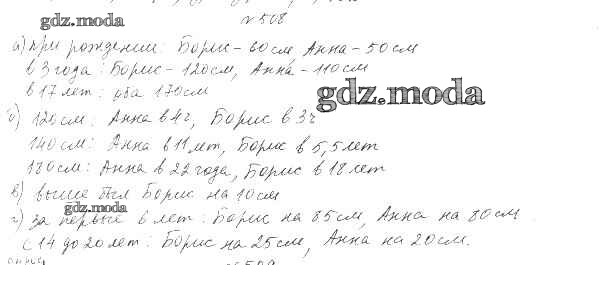 №508
gdz.moda
а) при рождении: Борис - 60см, Анна - 50см
в 3 года: Борис - 120см, Анна - 110см
в 17 лет: оба 170см
gdz.moda
б) 120см: Анна в 4г, Борис в 3г
140см: Анна в 11 лет, Борис в 5,5 лет
180см: Анна в 22 года, Борис в 18 лет
в) выше был Борис на 10см
gdz.moda
г) за первые 6 лет: Борис на 85см, Анна на 80см.
с 14 до 20 лет: Борис на 25см, Анна на 20см.